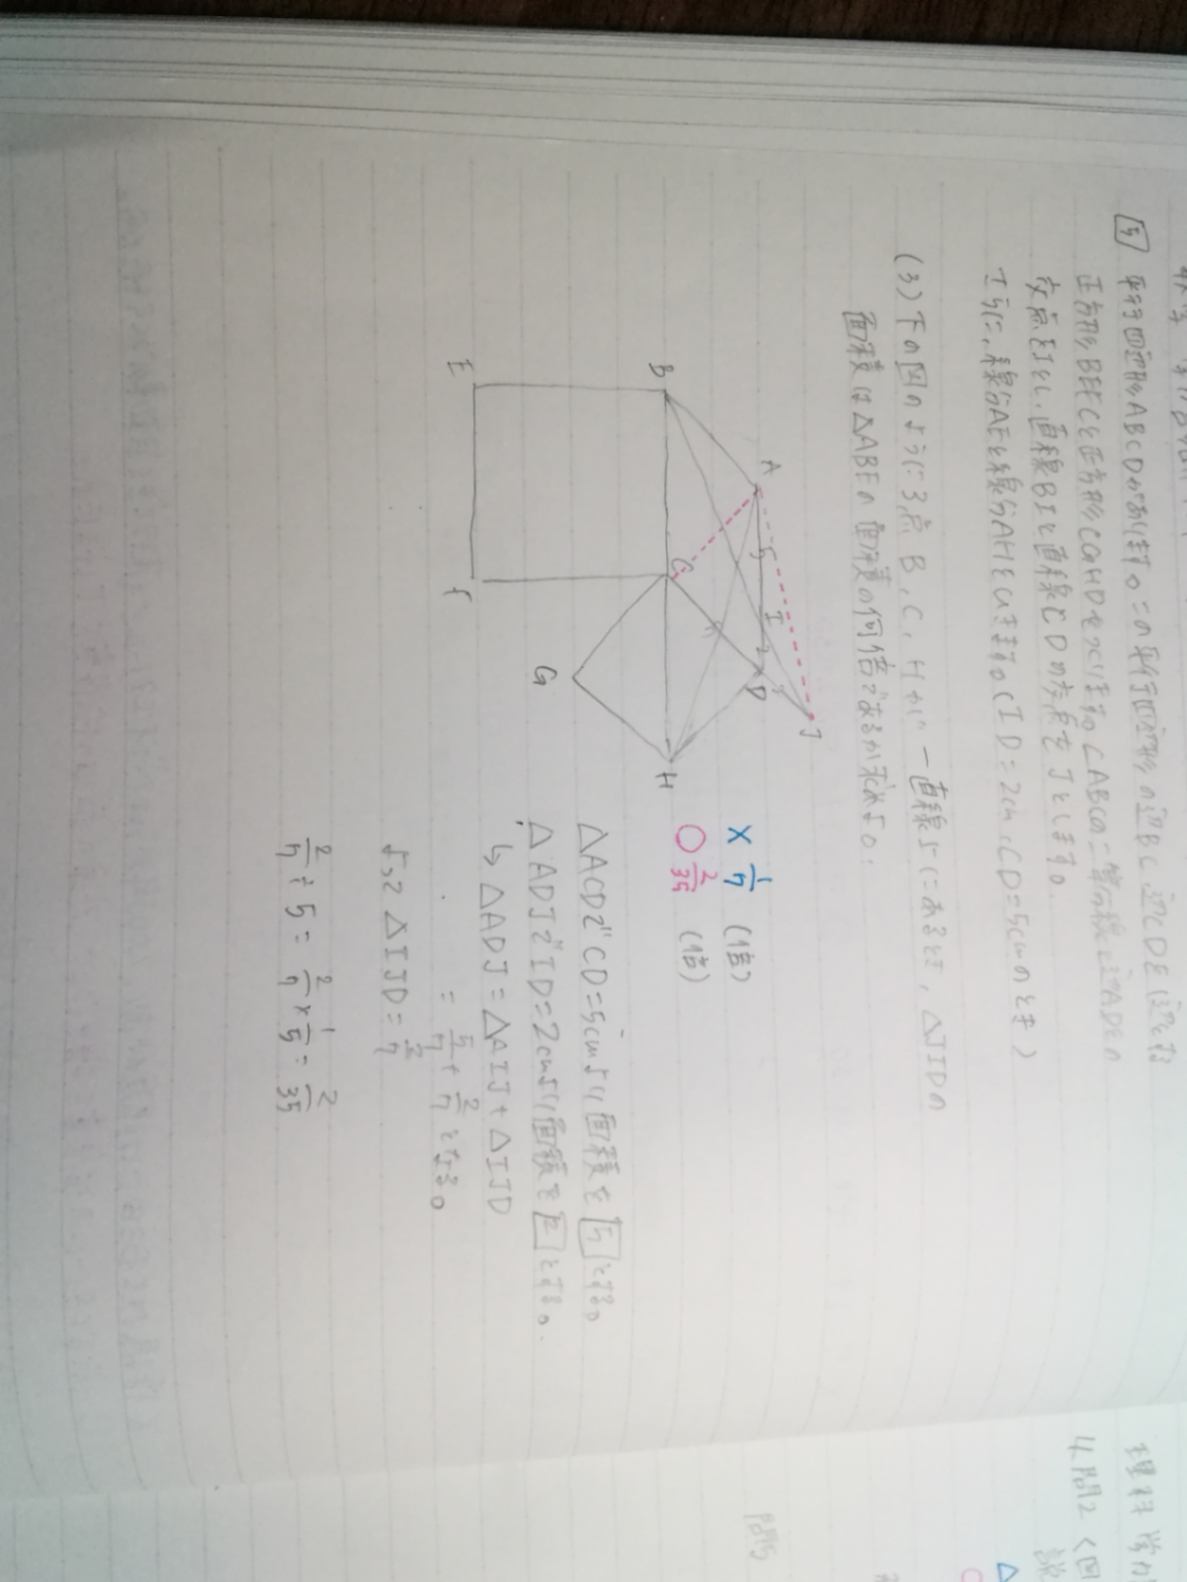 5 平行四辺形ABCDがあります。この平行四辺形の辺BC、辺CDを1辺とする
正方形BEFCと正方形CGHDをつくります。∠ABCの二等分線と辺ADとの
交点をIとし、直線BIと直線CDの交点をJとします。
さらに、線分AEと線分AHをひきます。(ID=2cm、CD=5cmのとき)
(3)下の図のように3点B,C,Hが一直線上にあるとき、△JIDの
面積は△ABEの面積の何倍であるか求めよ。
J
A
5
I
2
D
B
C
H
G
E
F
× 1/7 (倍)
○ 2/35 (倍)
△ACDでCD=5cmより面積を5とする。
△ADJでID=2cmより面積を2とする。
↳△ADJ=△AIJ+△IJD
= 5/7 + 2/7 となる。
よって△IJD=2/7
2/7÷5=2/7×1/5=2/35
4.問2
問5